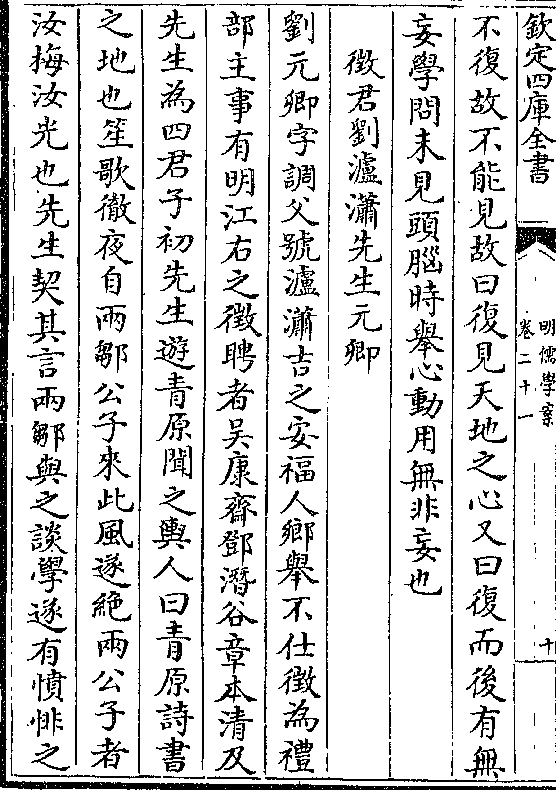 欽定四庫全書
明儒學案
卷二十一
十
不復故不能見故曰復見天地之心又曰復而後有無
妄學問未見頭腦時舉心動用無非妄也
徵君劉瀘瀟先生元卿
劉元卿字調父號瀘瀟吉之安福人鄉舉不仕徵為禮
部主事有明江右之徵聘者吳康齋鄧潛谷章本清及
先生為四君子初先生遊青原聞之輿人曰青原詩書
之地也笙歌徹夜自兩鄒公子來此風遂絶兩公子者
汝梅汝光也先生契其言兩鄒與之談學遂有憤悱之